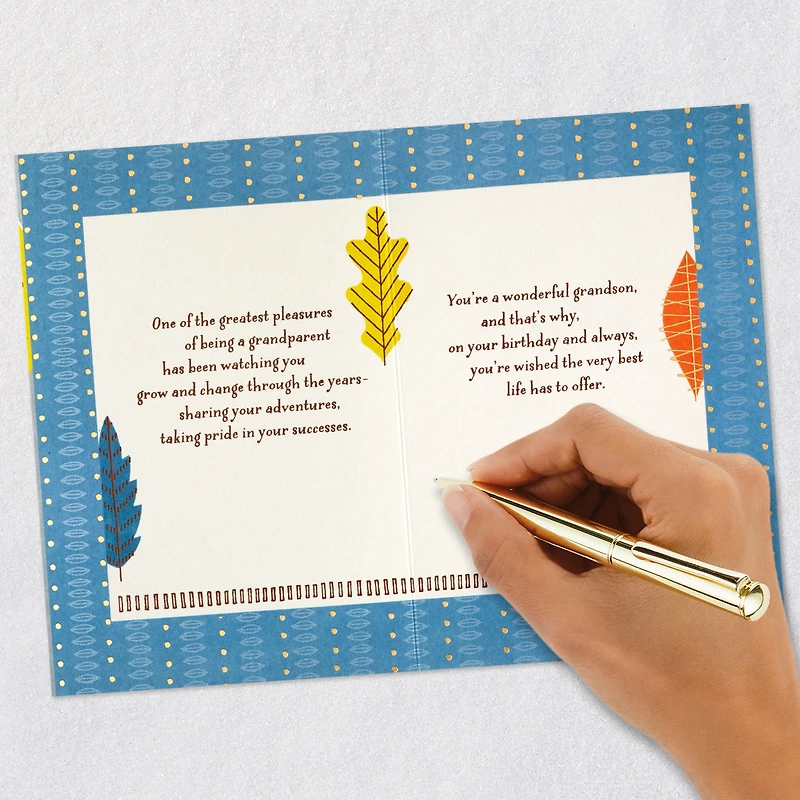 One of the greatest pleasures
of being a grandparent
has been watching you
grow and change through the years–
sharing your adventures,
taking pride in your successes.
You're a wonderful grandson,
and that's why,
on your birthday and always,
you're wished the very best
life has to offer.